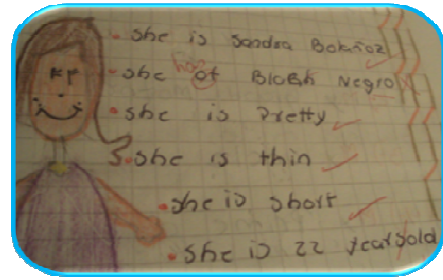 • she is Sandra
has
• she of Black Negro
• she is Pretty
• she is thin
• she is short
• she is 22 years old